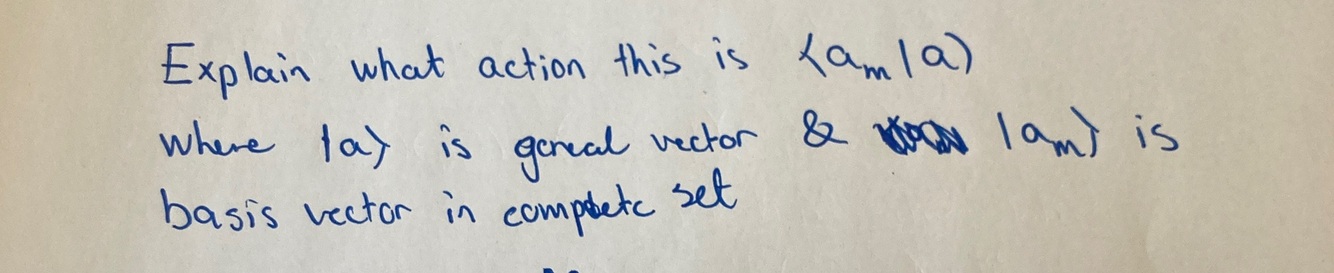 Explain what action this is ⟨aₘ|a⟩
where |a⟩ is gereal vector & |aₘ⟩ is
basis vector in complete set